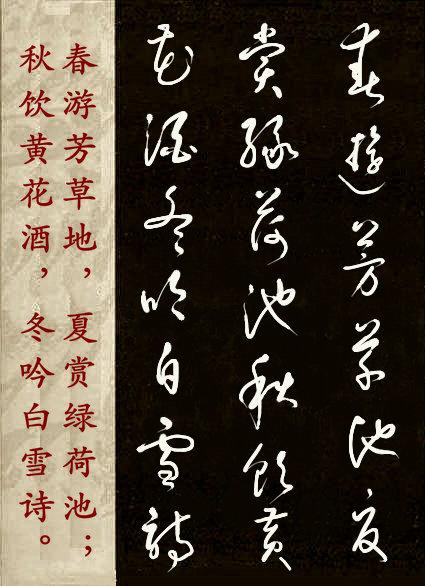 春遊芳草地夏
賞綠荷池秋飲黃
花酒冬吟白雪詩
春游芳草地，夏赏绿荷池；
秋饮黄花酒，冬吟白雪诗。